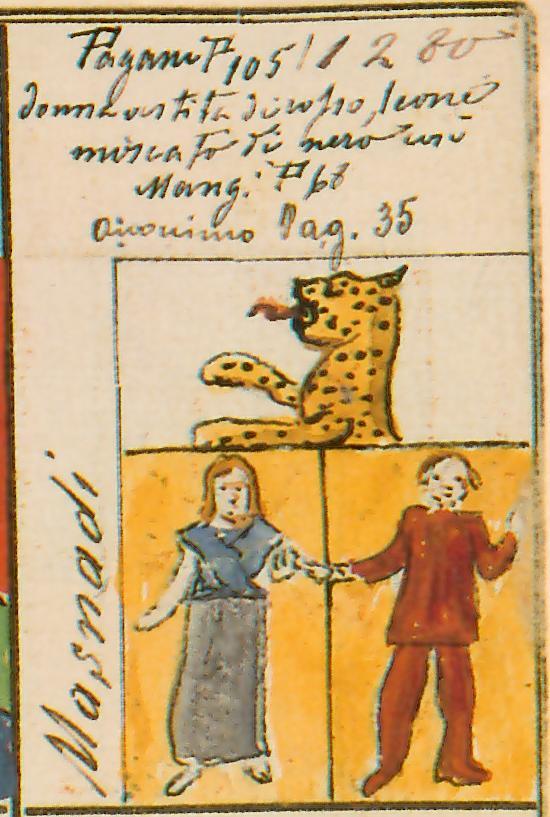 Pagani P 105 / 1280
donna vestita di rosso, leone
miscato di nero
Mang. P 68
Anonimo Pag. 35
Masnadi